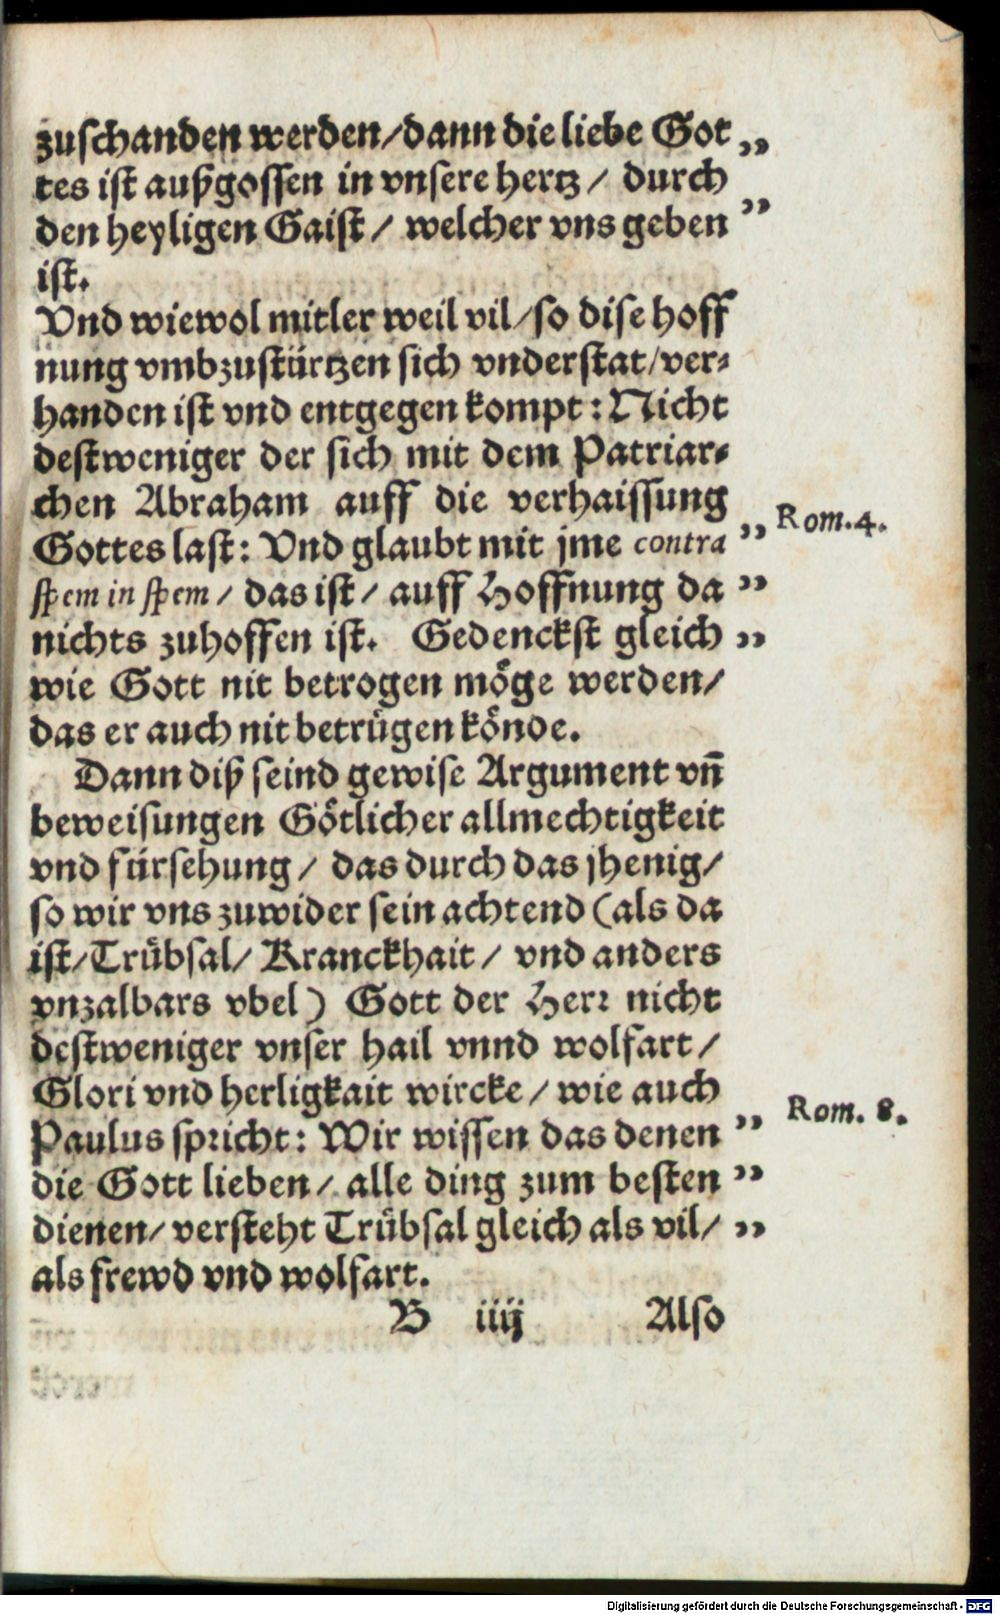 zuschanden werden/dann die liebe Got „
tes ist außgossen in vnsere hertz / durch
den heyligen Gaist / welcher vns geben „
ist.
Vnd wiewol mitler weil vil/so dise hoff
nung vmbzustürtzen sich vnderstat/ver⸗
handen ist vnd entgegen kompt: Nicht
destweniger der sich mit dem Patriar⸗
chen Abraham auff die verhaissung
Gottes last: Vnd glaubt mit jme contra „ Rom.4.
spem in spem / das ist / auff Hoffnung da „
nichts zuhoffen ist. Gedenckst gleich „
wie Gott nit betrogen möge werden/
das er auch nit betrügen könde.
Dann diß seind gewise Argument vn̄
beweisungen Götlicher allmechtigkeit
vnd fürsehung / das durch das jhenig/
so wir vns zuwider sein achtend (als da
ist/Trübsal/ Kranckhait / vnd anders
vnzalbars vbel) Gott der Herr nicht
destweniger vnser hail vnnd wolfart /
Glori vnd herligkait wircke / wie auch
Paulus spricht: Wir wissen das denen „ Rom. 8.
die Gott lieben / alle ding zum besten „
dienen/ versteht Trübsal gleich als vil/ „
als frewd vnd wolfart.
B iiij Also
Digitalisierung gefördert durch die Deutsche Forschungsgemeinschaft - DFG